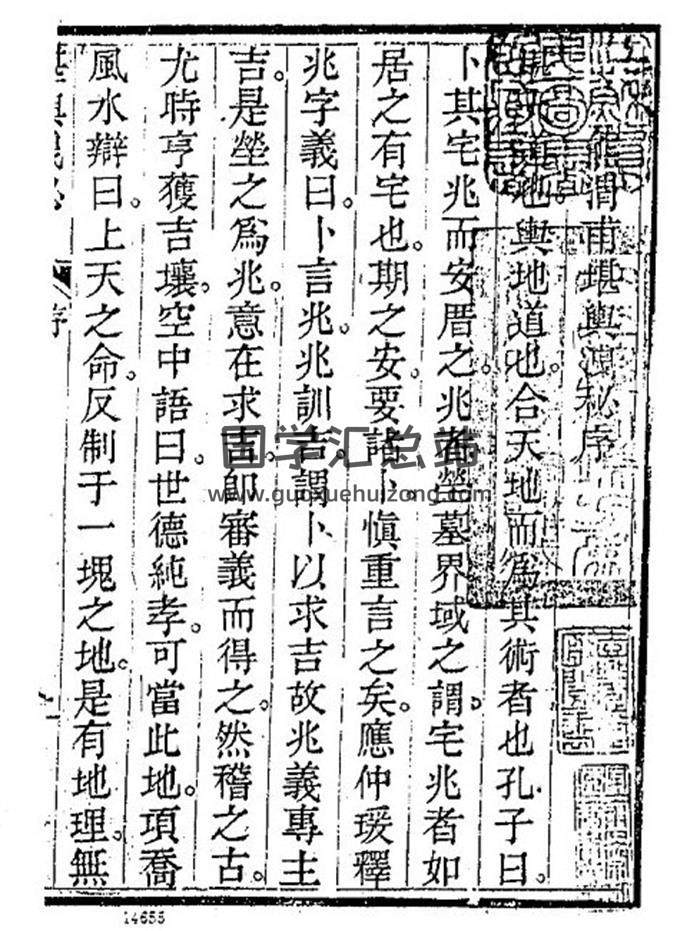 渭甫堪輿洩秘序
地輿地道也合天地而爲其術者也孔子曰
卜其宅兆而安厝之兆者塋墓界域之謂宅兆者如
居之有宅也期之安要諸卜愼重言之矣應仲瑗釋
兆字義曰卜言兆兆訓吉謂卜以求吉故兆義專主
吉是塋之爲兆意在求吉卽審義而得之然稽之古
尤時亨獲吉壤空中語曰世德純孝可當此地項喬
風水辯曰上天之命反制于一塊之地是有地理無
序
国学汇总站
www.guoxuehuizong.com
14655